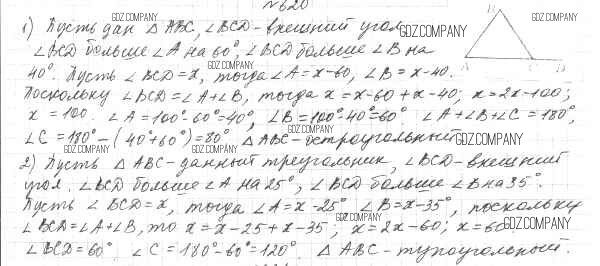 №620
1) Пусть дан △ABC, ∠BCD - внешний угол,
∠BCD больше ∠A на 60°, ∠BCD больше ∠B на
40°. Пусть ∠BCD = x, тогда ∠A = x-60, ∠B = x-40.
Поскольку ∠BCD = ∠A+∠B, тогда x = x-60 + x-40; x = 2x-100;
x = 100. ∠A = 100°-60° = 40°, ∠B = 100°-40° = 60°. ∠A+∠B+∠C = 180°,
∠C = 180° - (40°+60°) = 80° △ABC - остроугольный
2) Пусть △ABC - данный треугольник, ∠BCD - внешний
угол. ∠BCD больше ∠A на 25°, ∠BCD больше ∠B на 35°.
Пусть ∠BCD = x, тогда ∠A = x-25° ∠B = x-35°, поскольку
∠BCD = ∠A+∠B, то x = x-25 + x-35; x = 2x-60; x = 60
∠BCD = 60° ∠C = 180°-60° = 120°. △ABC - тупоугольный.
B
A
C
D
GDZ.COMPANY
GDZ.COMPANY
GDZ.COMPANY
GDZ.COMPANY
GDZ.COMPANY
GDZ.COMPANY
GDZ.COMPANY
GDZ.COMPANY
GDZ.COMPANY
GDZ.COMPANY